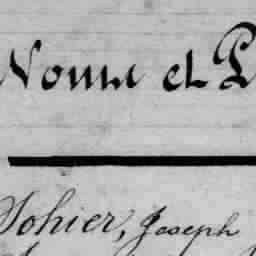 Noms et P
Sohier, Joseph